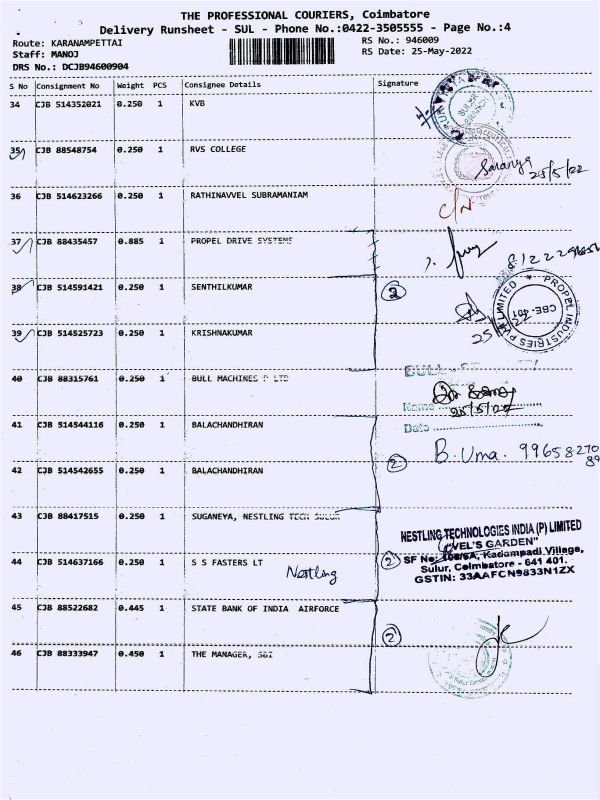 THE PROFESSIONAL COURIERS, Coimbatore
Delivery Runsheet - SUL - Phone No.:0422-3505555 - Page No.:4
Route: KARANAMPETTAI
RS No.: 946009
Staff: MANOJ
RS Date: 25-May-2022
DRS No.: DCJB94600904
S No Consignment No Weight PCS Consignee Details Signature
34 CJB 514352021 0.250 1 KVB
35 CJB 88548754 0.250 1 RVS COLLEGE
Saranya
25/5/22
36 CJB 514623266 0.250 1 RATHINAVVEL SUBRAMANIAM
C/N
37 CJB 88435457 0.885 1 PROPEL DRIVE SYSTEMS
38 CJB 514591421 0.250 1 SENTHILKUMAR
3
PROPEL INDUSTRIES PVT LIMITED
CBE-401
39 CJB 514525723 0.250 1 KRISHNAKUMAR
40 CJB 88315761 0.250 1 BULL MACHINES P LTD
BULL
Name
25/5/22
Date
41 CJB 514544116 0.250 1 BALACHANDHIRAN
B. Uma. 99658270
89
42 CJB 514542655 0.250 1 BALACHANDHIRAN
2
43 CJB 88417515 0.250 1 SUGANEYA, NESTLING TECH SULUR
NESTLING TECHNOLOGIES INDIA (P) LIMITED
"VEL'S GARDEN"
SF No: 108/6A, Kadampadi Village,
Sulur, Coimbatore - 641 401.
GSTIN: 33AAFCN9833N1ZX
44 CJB 514637166 0.250 1 S S FASTERS LT
Nestling
2
45 CJB 88522682 0.445 1 STATE BANK OF INDIA AIRFORCE
2
46 CJB 88333947 0.450 1 THE MANAGER, SBI